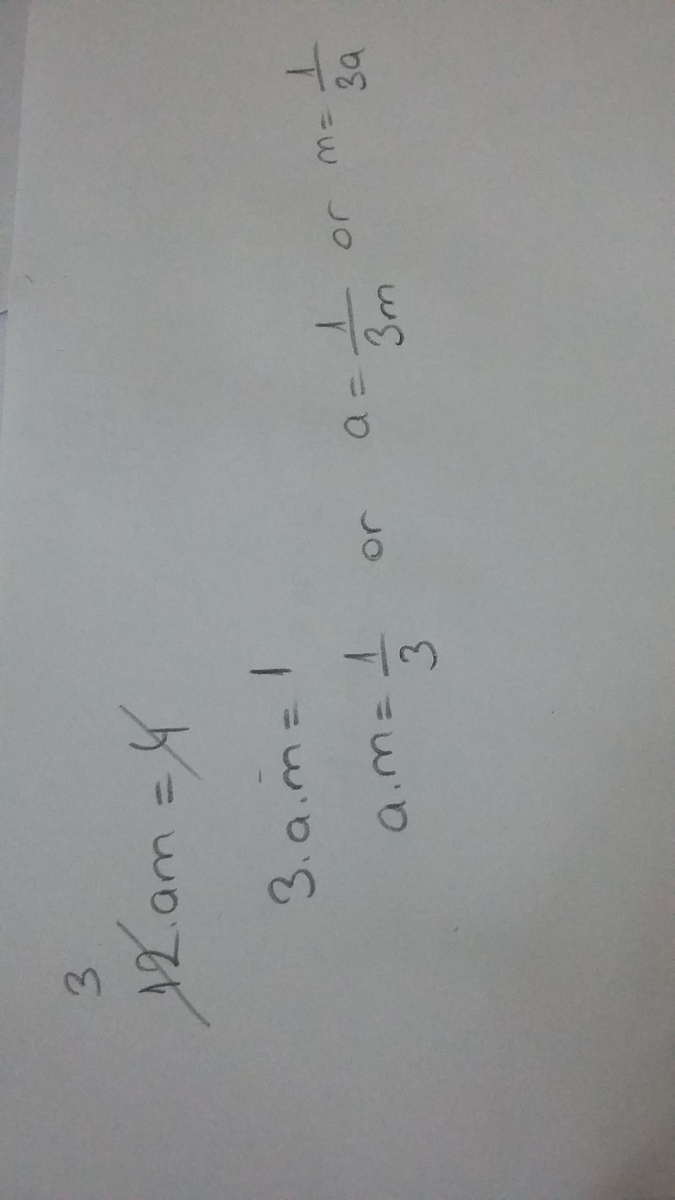 3
12.am = 4
3.a.m = 1
a.m = 1/3 or a = 1/3m or m = 1/3a